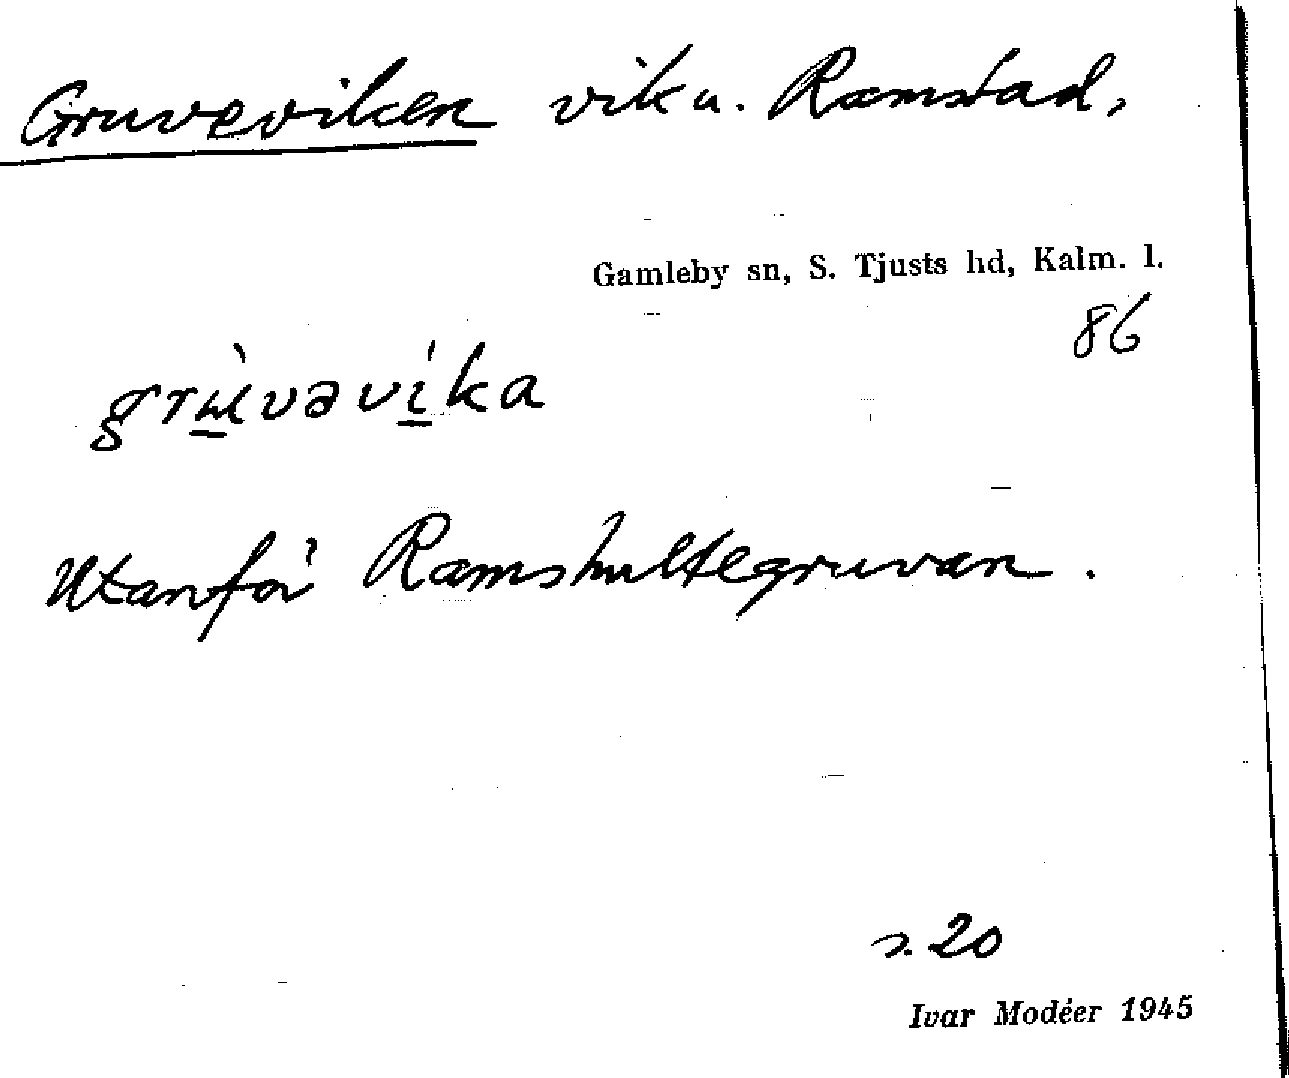 Gruveviken vik u. Ramstad,
Gamleby sn, S. Tjusts hd, Kalm. l.
86
grɯ̱̀vəví̱ka
Utanför Ramshultegruvan.
s. 20
Ivar Modéer 1945